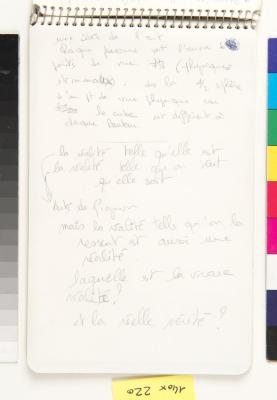 une sorte de
chaque personne voit l'œuvre
points de vue (physiques
et mentaux). de la 1/2 sphère
d'un pt de vue physique car
le cube est différent à
chaque hauteur
la réalité telle qu'elle est
la réalité telle qu'on veut
qu'elle soit
buts de Pignon
mais la réalité telle qu'on la
ressent est aussi une
réalité
laquelle est la vraie
réalité?
et la réelle vérité?
140x 220